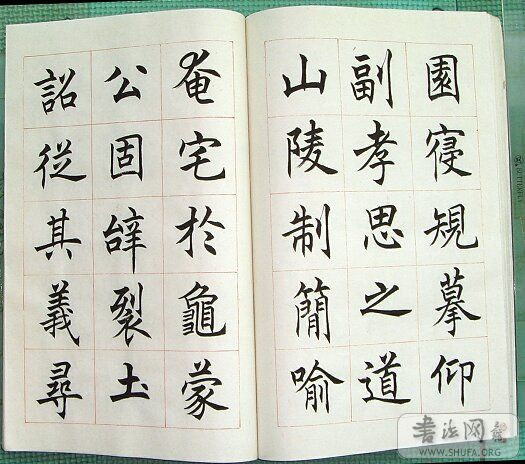 園寢規摹仰
副孝思之道
山陵制簡喻
奄宅於龜蒙
公固辝裂土
詔從其義尋
书法网
WWW.SHUFA.ORG